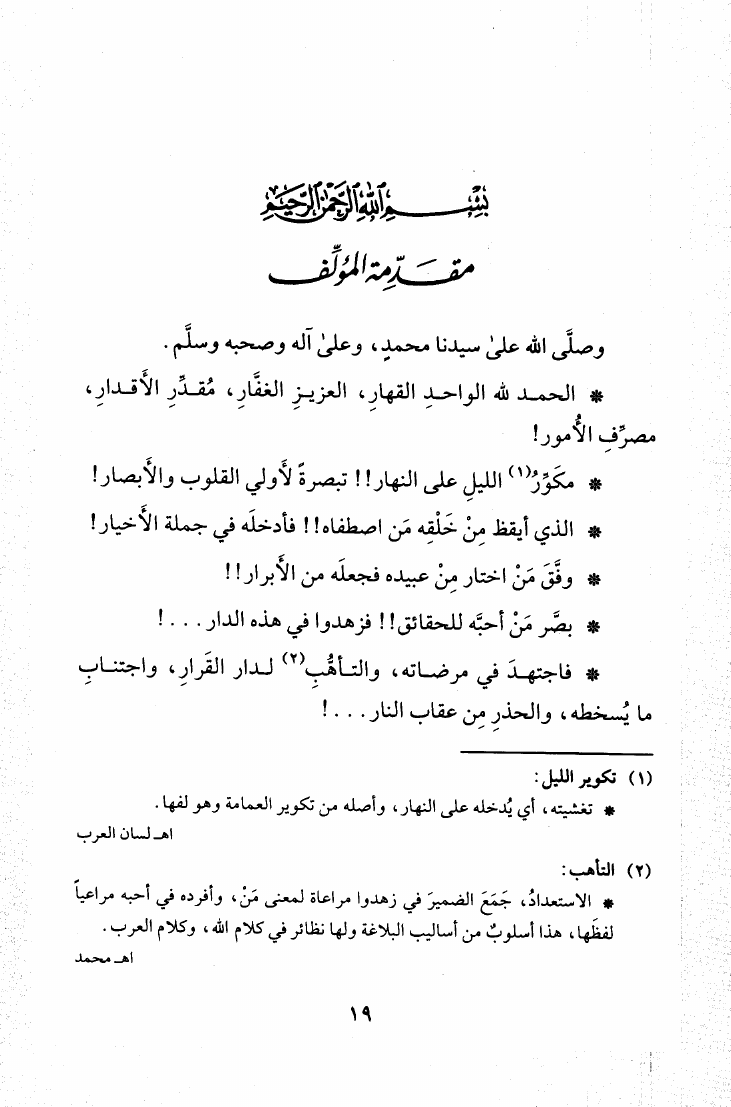 بِسْمِ ٱللهِ ٱلرَّحْمٰنِ ٱلرَّحِيمِ
مقدِّمة المؤلِّف
وصلَّى الله علىٰ سيدنا محمدٍ، وعلىٰ آله وصحبه وسلَّم.
* الحمد لله الواحدِ القهارِ، العزيزِ الغفَّارِ، مُقدِّرِ الأَقدارِ،
مصرِّفِ الأُمور!
* مكَوِّرُ(١) الليلِ على النهار!! تبصرةً لأَولي القلوب والأَبصار!
* الذي أيقظ مِنْ خَلْقِه مَن اصطفاه!! فأدخلَه في جملة الأَخيار!
* وفَّقَ مَنْ اختار مِنْ عبيده فجعلَه من الأَبرار!!
* بصَّر مَنْ أحبَّه للحقائق!! فزهدوا في هذه الدار...!
* فاجتهدَ في مرضاته، والتأهُّبِ(٢) لدار القَرارِ، واجتنابِ
ما يُسخطه، والحذرِ مِن عقاب النار...!
(١) تكوير الليل:
* تغشيته، أي يُدخله على النهار، وأصله من تكوير العمامة وهو لفها.
اهـ لسان العرب
(٢) التأهب:
* الاستعدادُ، جَمَعَ الضميرَ في زهدوا مراعاة لمعنى مَنْ، وأفرده في أحبه مراعياً
لفظَها، هذا أسلوبٌ من أساليب البلاغة ولها نظائر في كلام الله، وكلام العرب.
اهـ محمد
١٩